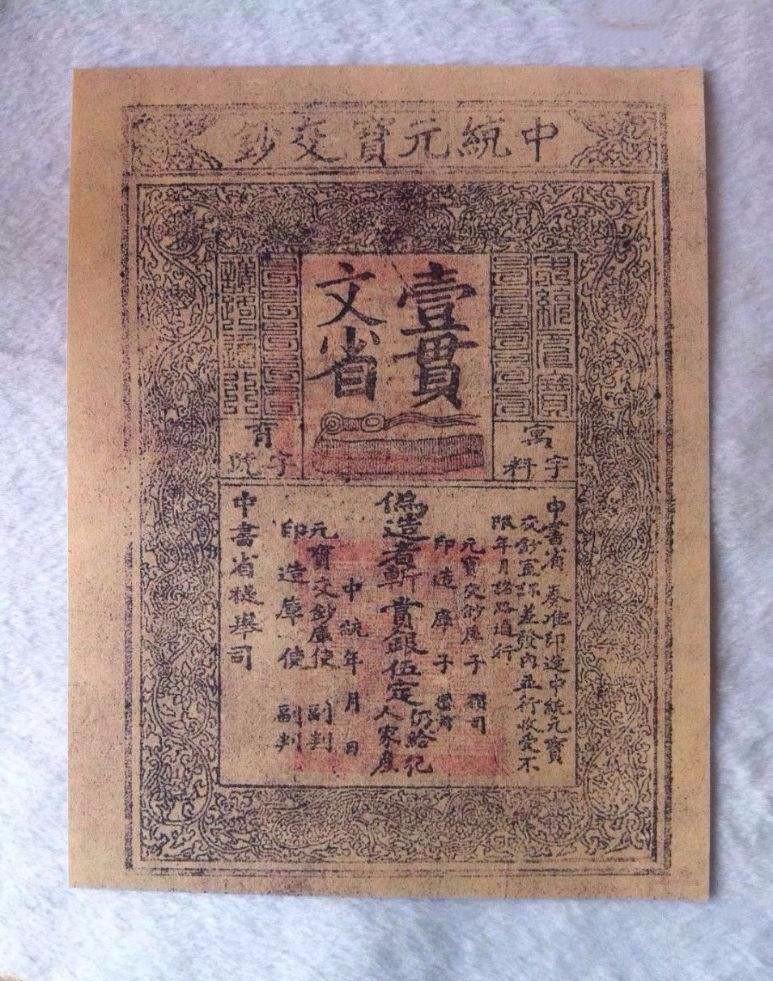 中統元寶交鈔
壹貫
文省
字料
字號
中書省 奏准印造中統元寶
交鈔宣課差發內並行收受不
限年月諸路通行
元寶交鈔庫子 攢司
印造庫子 攢司
偽造者斬賞銀伍定仍給犯
人家産
中統年月日
元寶交鈔庫使 副判
印造庫使 副判
中書省提舉司